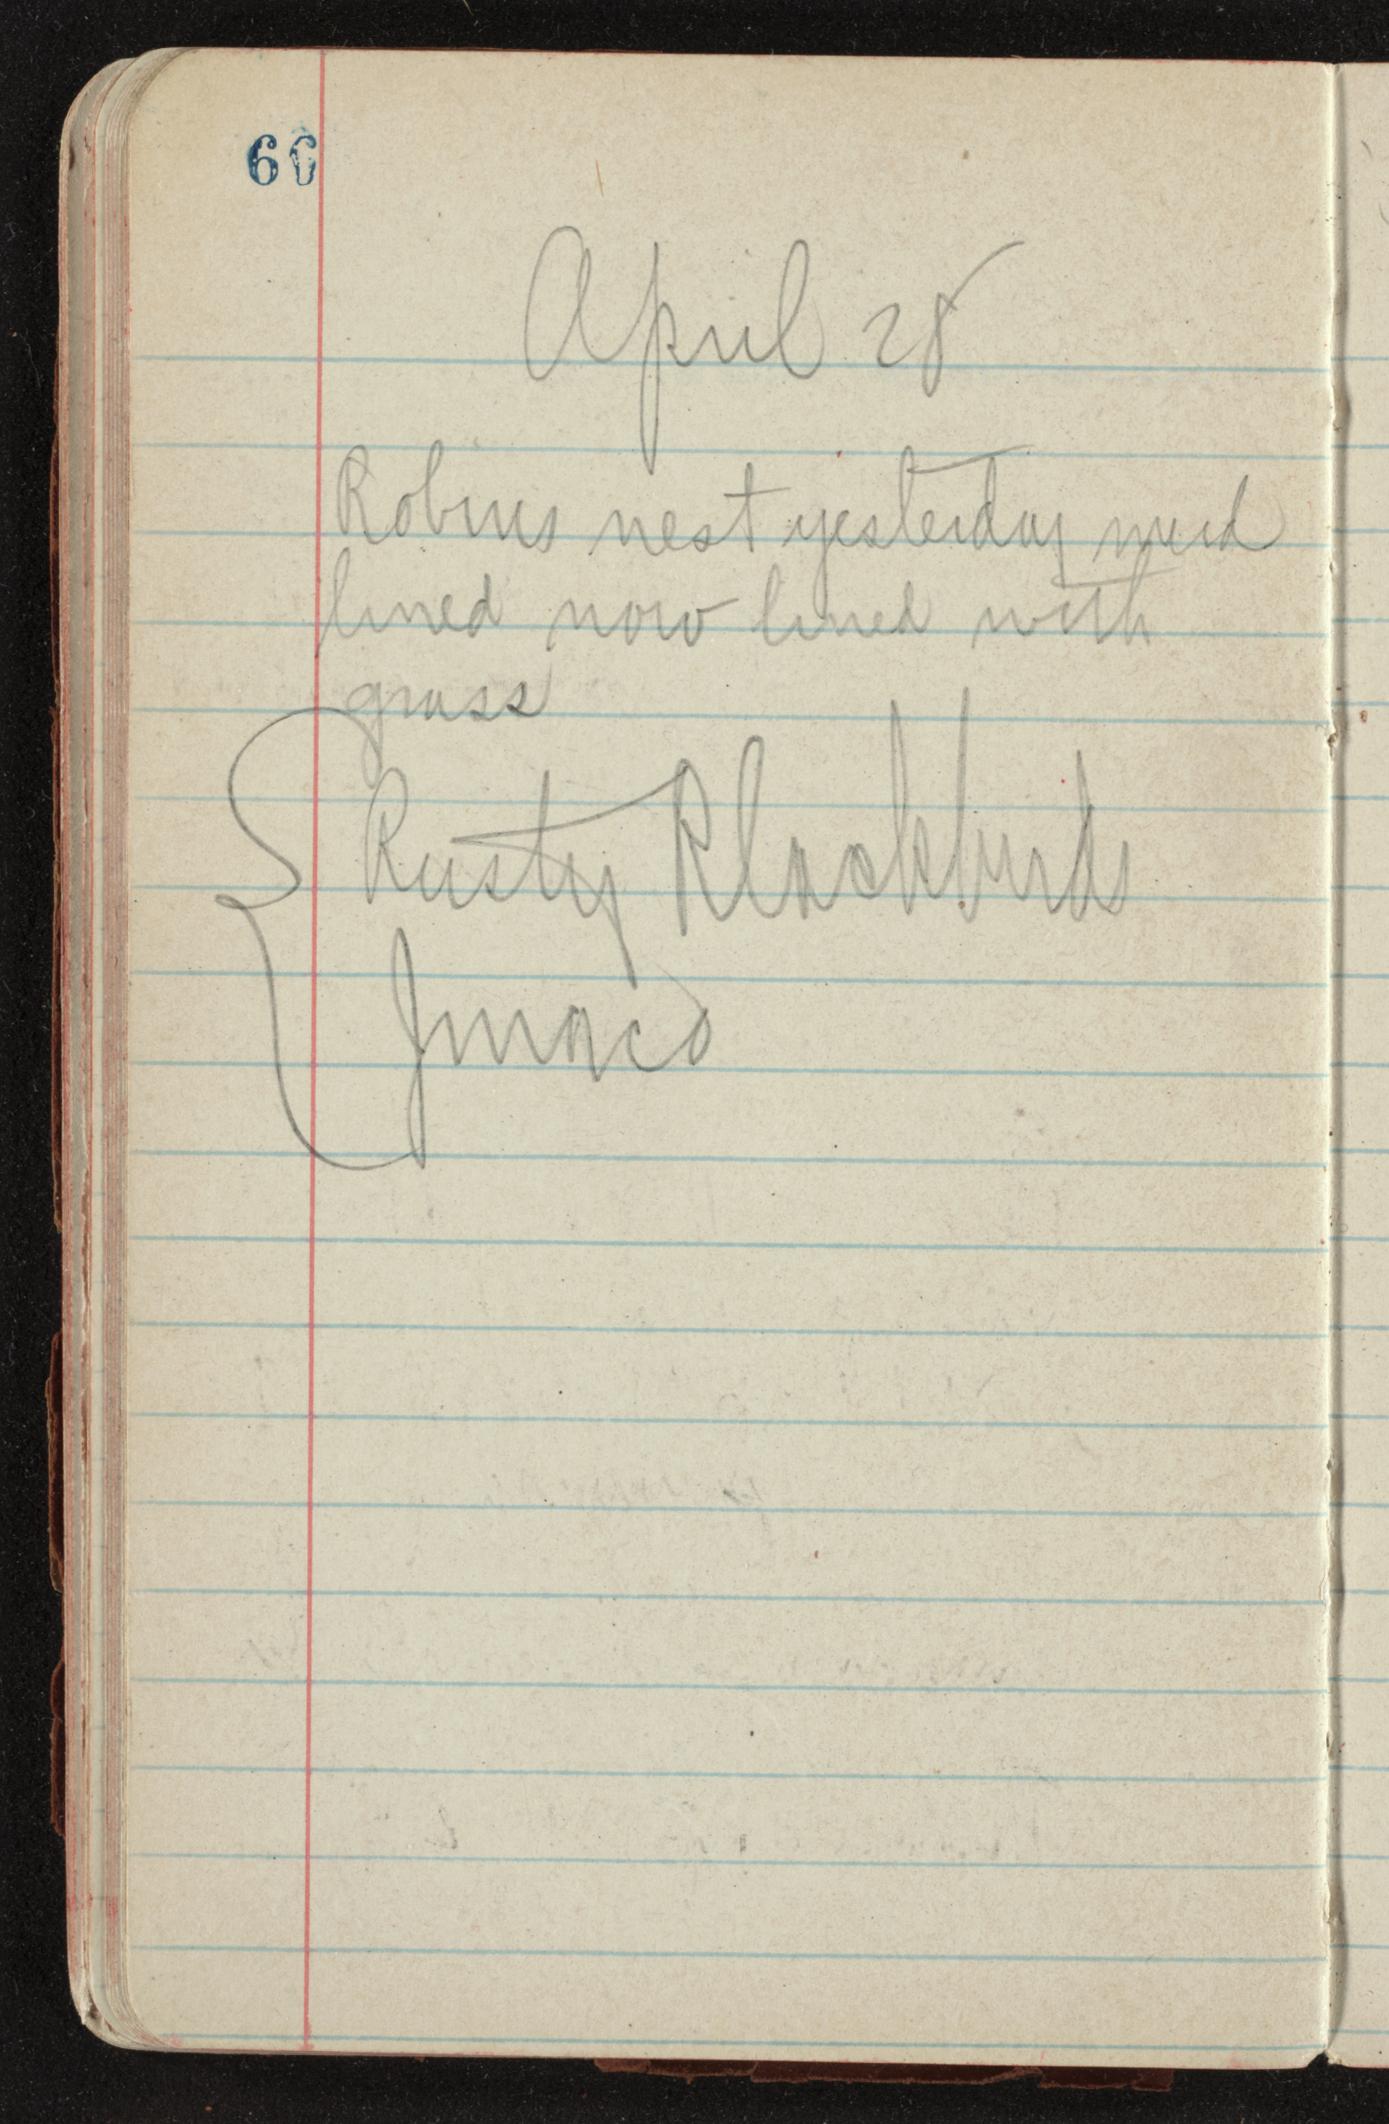 66
April 28
Robins nest yesterday mud
lined now lined with
grass
Rusty Blackbirds
Junaco